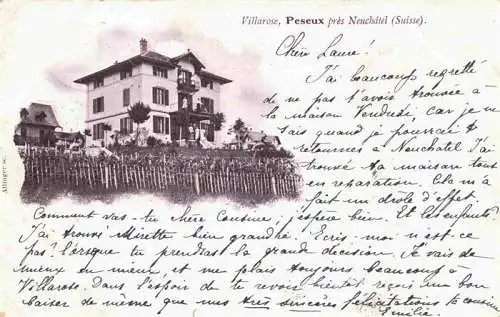 Villarose, Peseux près Neuchâtel (Suisse).
Chère Laure!
J'ai beaucoup regretté
de ne pas t'avoir trouvée à
la maison Vendredi, car je ne
sais quand je pourrai
retourner à Neuchâtel. J'ai
trouvé ta maison tout
en reparation. Cela m'a
fait un drôle d'effet.
Comment vas-tu chère Cousine, j'espère bien. Et les enfants?
J'ai trouvé Mirette bien grandie. Ecris-moi n'est-ce
pas? lorsque tu prendras la grande décision. Je vais de
mieux en mieux, et me plais toujours beaucoup à
Villarose. Dans l'espoir de te revoir bientôt reçois un bon
baiser de même que mes très sincères félicitations ta cousine
Emilie.
Attinger sc.